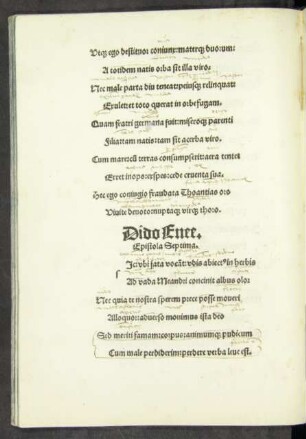 Utq; ego destituor coniunx: materq; duorum:
A totidem natis orba sit illa viro.
Nec male parta diu teneat: peiusq; relinquat
Exulet et toto querat in orbe fugam.
Quam fratri germana fuit: miseroq; parenti
Filia: tam natis: tam sit acerba viro.
Cum mare: cum terras consumpserit: aera tentet
Erret inops: expes: cede cruenta sua.
Hec ego coniugio fraudata Thoantias oro
Viuite deuoto nuptaq; virq; thoro.
Dido Enee.
Epistola Septima.
Sic vbi fata vocant: vdis abiectus in herbis
Ad vada Meandri concinit albus olor
Nec quia te nostra sperem prece posse moueri
Alloquor: aduerso mouimus ista deo
Sed meriti famam: corpusq; animumq; pudicum
Cum male perdiderim: perdere verba leue est.